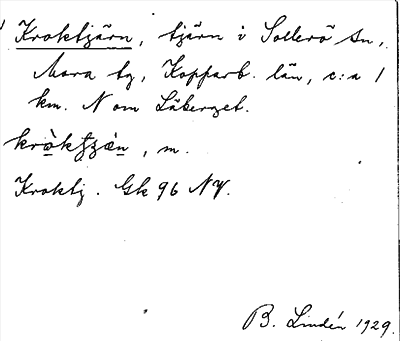 Kroktjärn, tjärn i Sollerö sn,
Mora tg, Kopparb. län, c:a 1
km. N om Läberget.
, m.
Kroktj. Gk 96 NV.
B. Lindén 1929.